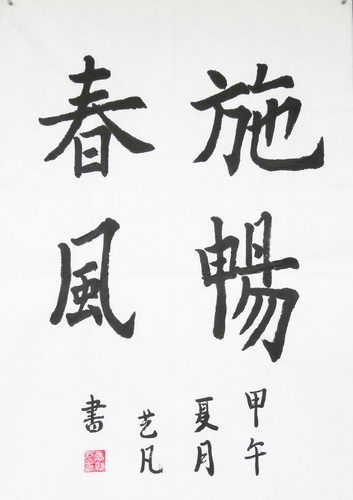 施暢
春風
甲午
夏月
艺凡
書